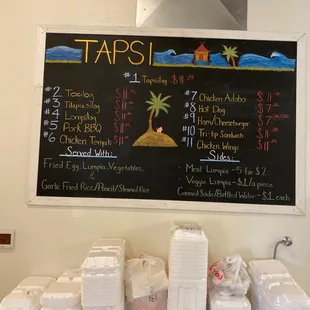 TAPSI
#1 Tapsilog $11
#2 Tocilog $11
#3 Tilapiasilog $11
#4 Lumpilog $11
#5 Pork BBQ $11
#6 Chicken Teriyaki $11
Served With:
Fried Egg, Lumpia, Vegetables,
&
Garlic Fried Rice/Pancit/Steamed Rice
#7 Chicken Adobo $11
#8 Hot Dog $7
#9 Ham/Cheeseburger
#10 Tri-tip Sandwich $11
#11 Chicken Wings $11
Sides:
Meat Lumpia - 5 for $2
Veggie Lumpia - $1/a piece
Canned Soda/Bottled Water - $1 each